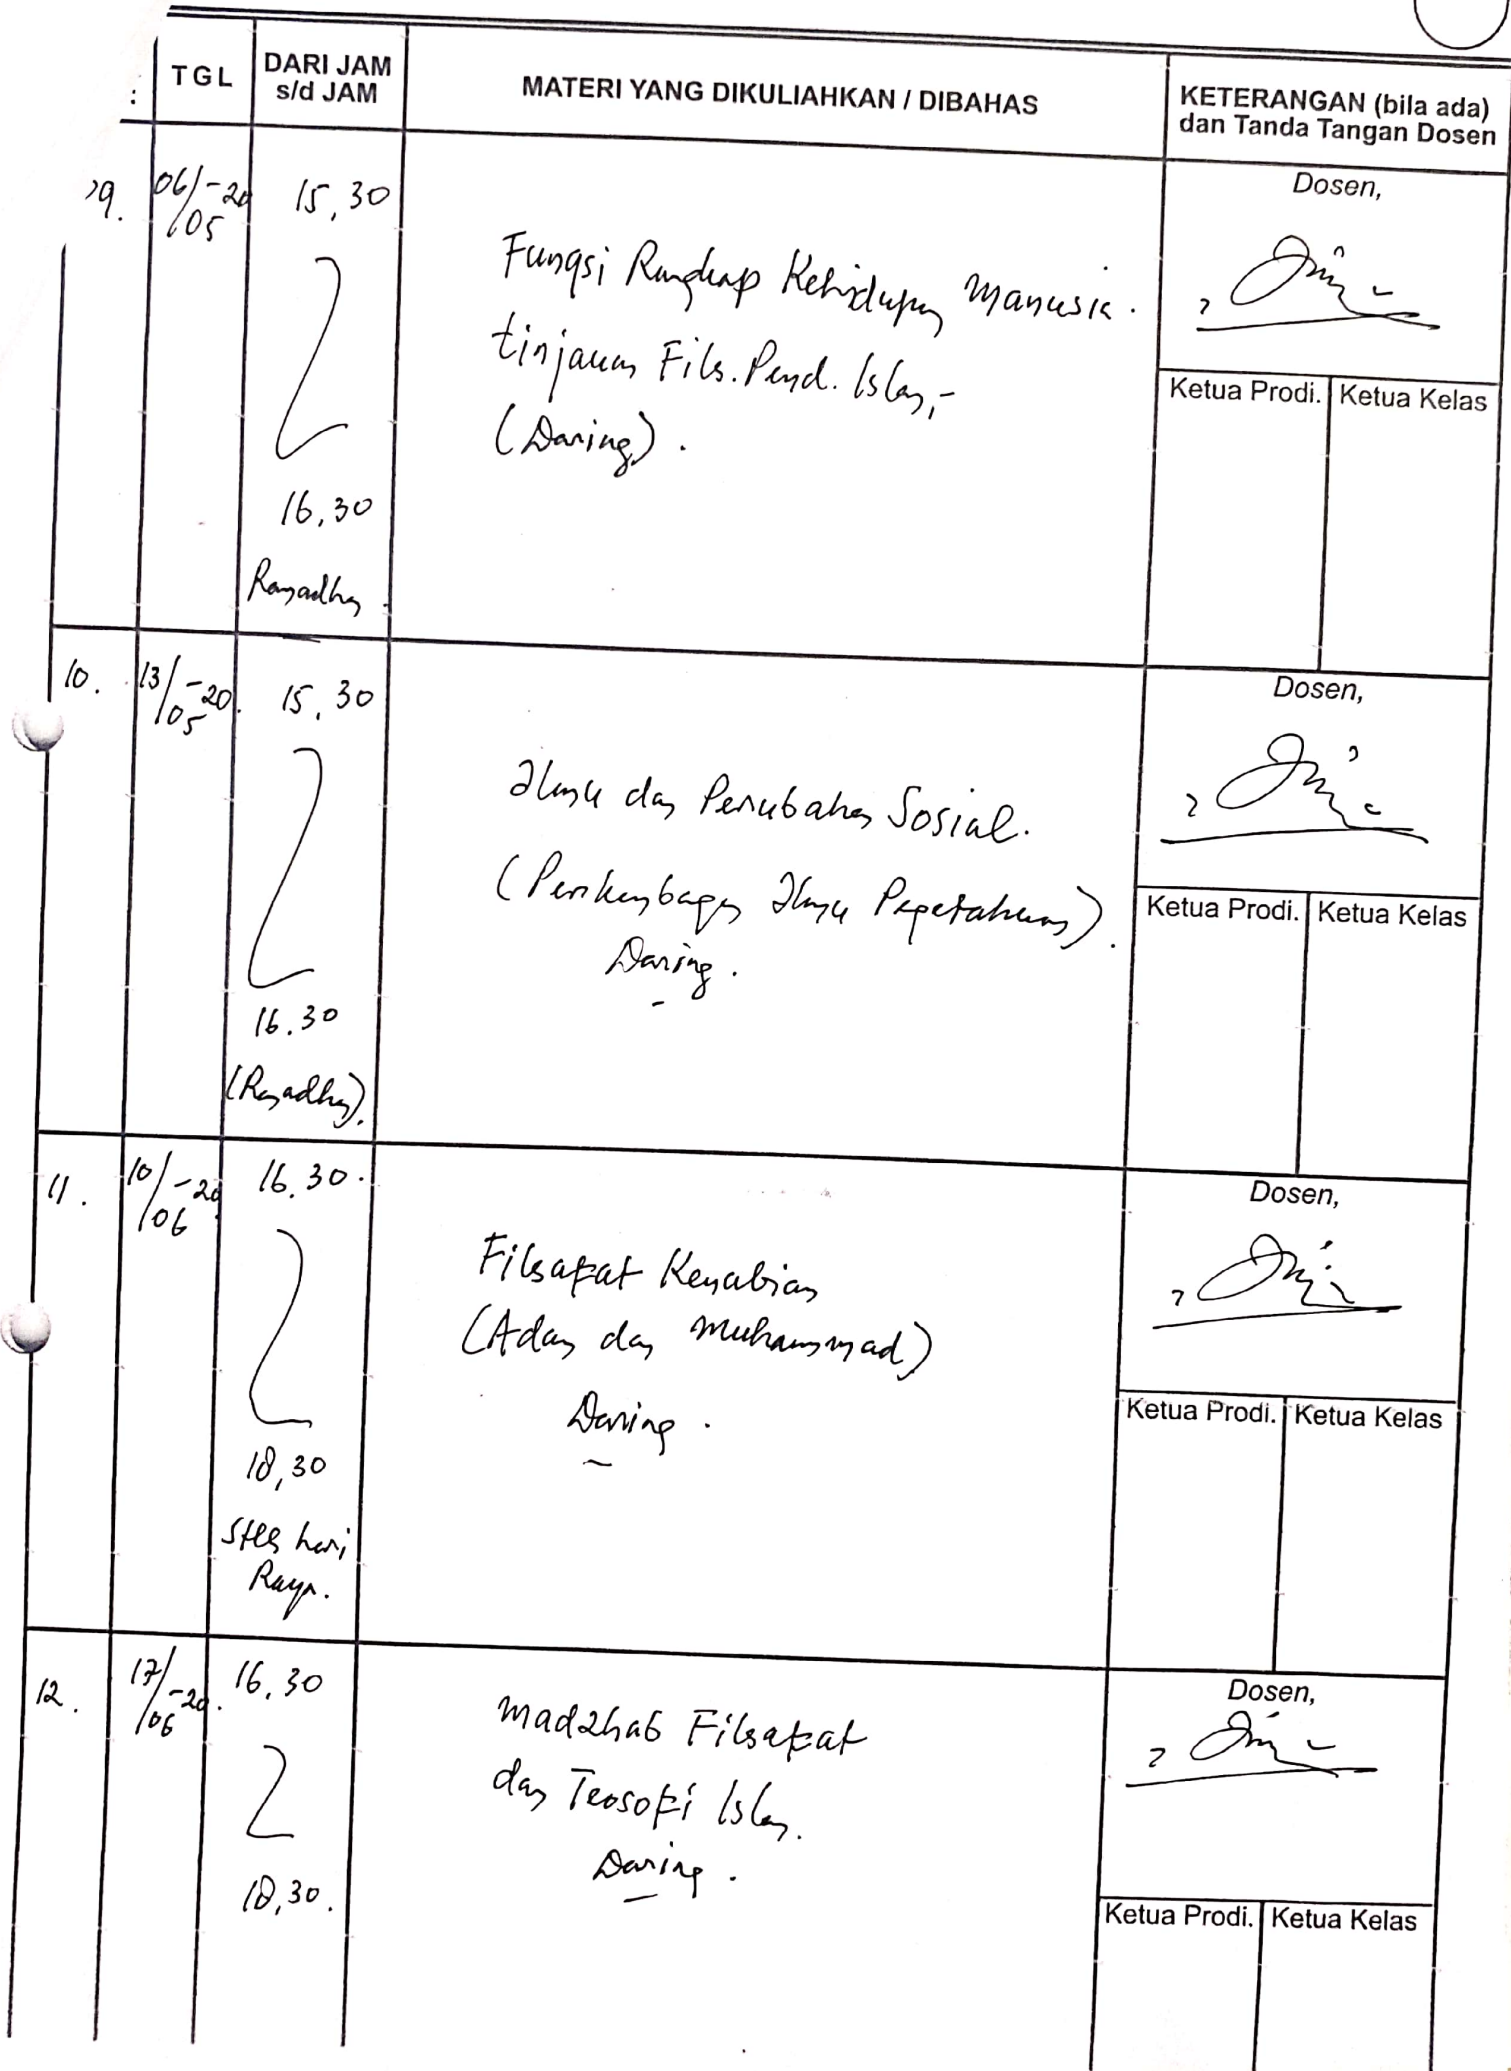 TGL
DARI JAM
s/d JAM
MATERI YANG DIKULIAHKAN / DIBAHAS
KETERANGAN (bila ada)
dan Tanda Tangan Dosen
:
9.
06/05-20
15,30
16,30
Ramadhan
Fungsi Rangkap Kehidupan Manusia.
tinjauan Fils. Pend. Islam,-
(Daring).
Dosen,
Ketua Prodi.
Ketua Kelas
10.
13/05-20.
15,30
16.30
(Ramadhan).
Ilmu dan Perubahan Sosial.
(Perkembangan Ilmu Pengetahuan).
Daring.
Dosen,
Ketua Prodi.
Ketua Kelas
11.
10/06-20.
16.30.
18,30
Stlh hari
Raya.
Filsafat Kenabian
(Adam dan Muhammad)
Daring.
Dosen,
Ketua Prodi.
Ketua Kelas
12.
17/06-20.
16,30
18,30.
Madzhab Filsafat
dan Teosofi Islam.
Daring.
Dosen,
Ketua Prodi.
Ketua Kelas